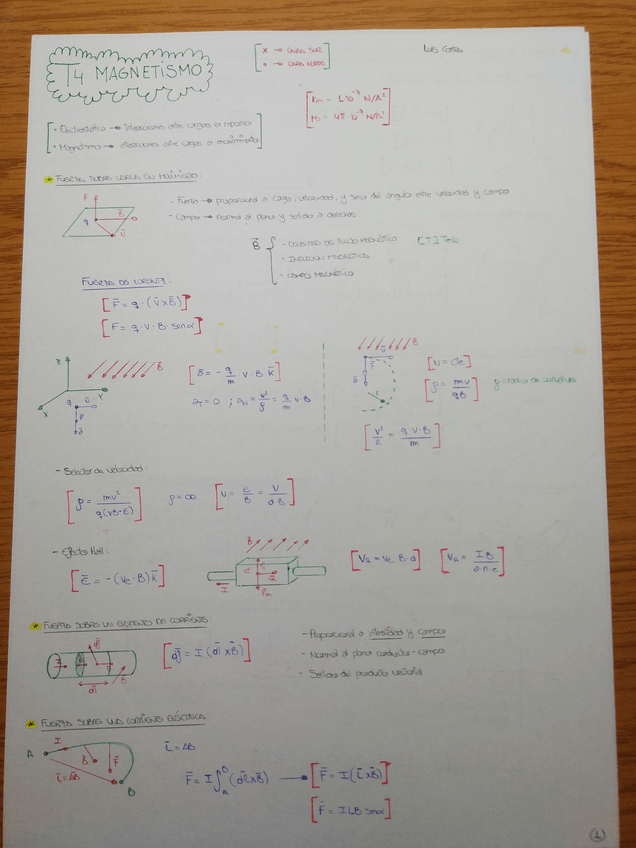 T4 MAGNETISMO
x → CARA SUR
• → CARA NORTE
• Electrostática → interacciones entre cargas en reposo
• Magnetismo → interacciones entre cargas en movimiento
μ₀ = 4π · 10⁻⁷ N/A²
* FUERZA SOBRE CARGA EN MOVIMIENTO:
- Fuerza → proporcional a carga, velocidad, y seno del ángulo entre velocidad y campo
- Campo → normal al plano y sentido a derechas.
B̄ { - DENSIDAD DE FLUJO MAGNÉTICO [T] Tesla
- INDUCCIÓN MAGNÉTICA
- CAMPO MAGNÉTICO
FUERZA DE LORENTZ:
[F̄ = q · (v̄ x B̄)]
[F = q · v · B · senα]
[ā = - q/m v · B k̄]
a_T = 0 ; a_N = v²/ρ = q/m v B
[v = cte]
[ρ = mv/qB] ρ = radio de curvatura
[v²/R = q·v·B/m]
- Selector de velocidad:
[ρ = mv²/q(vB-E)] ρ = ∞ [v = E/B = V/dB]
- Efecto Hall:
[Ē = -(v_e · B) k̄] [V_H = v_e B · d]
* FUERZA SOBRE UN ELEMENTO DE CORRIENTE:
[df̄ = I (dl̄ x B̄)]
- Proporcional a intensidad y campo
- Normal al plano conductor-campo
- Sentido del producto vectorial
* FUERZA SOBRE UNA CORRIENTE ELÉCTRICA
A I B̄ F̄ L̄ = AB B
L̄ = AB
F̄ = I ∫_A^B (dl̄ x B̄) → [F̄ = I (L̄ x B̄)]
[F = ILB senα]
1